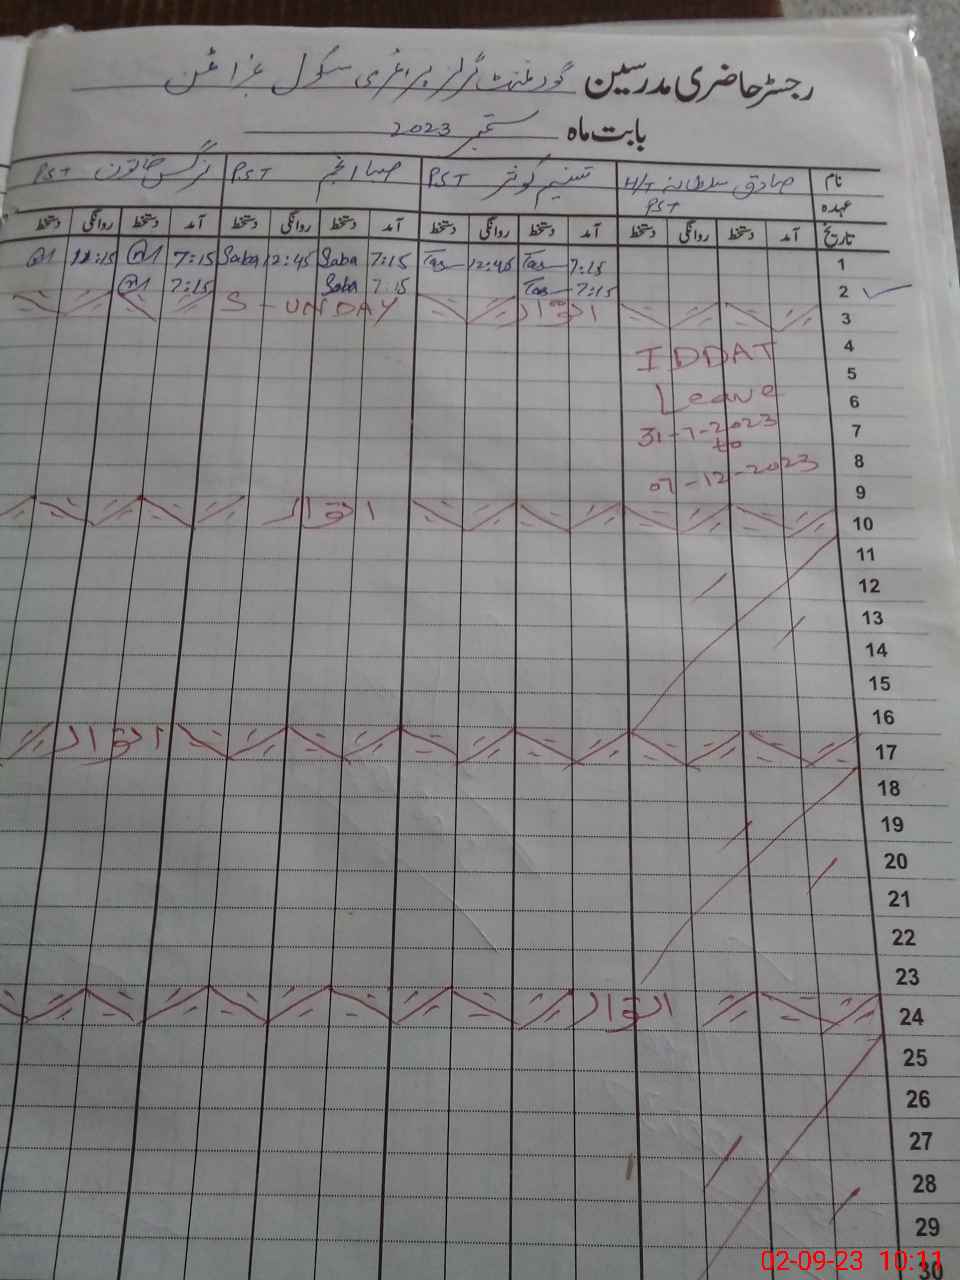 رجسٹر حاضری مدرسین گورنمنٹ گرلز پرائمری سکول
بابت ماہ ستمبر 2023
نام صادق سلطانہ H/T تسنیم کوثر PST صبا انجم PST نرگس خاتون PST
عہدہ PST
تاریخ آمد دستخط روانگی دستخط آمد دستخط روانگی دستخط آمد دستخط روانگی دستخط آمد دستخط روانگی دستخط
1 7:15 Tas 12:45 Tas 7:15 Saba 12:45 Saba 7:15 12:15
2 7:15 Tas 7:15 Saba 7:15
3 اتوار S-UNDAY
4 IDDAT
5
6 Leave
7 31-7-2023
to
8 07-12-2023
9
10 اتوار
11
12
13
14
15
16
17 اتوار
18
19
20
21
22
23
24 اتوار
25
26
27
28
29
30
02-09-23 10:11